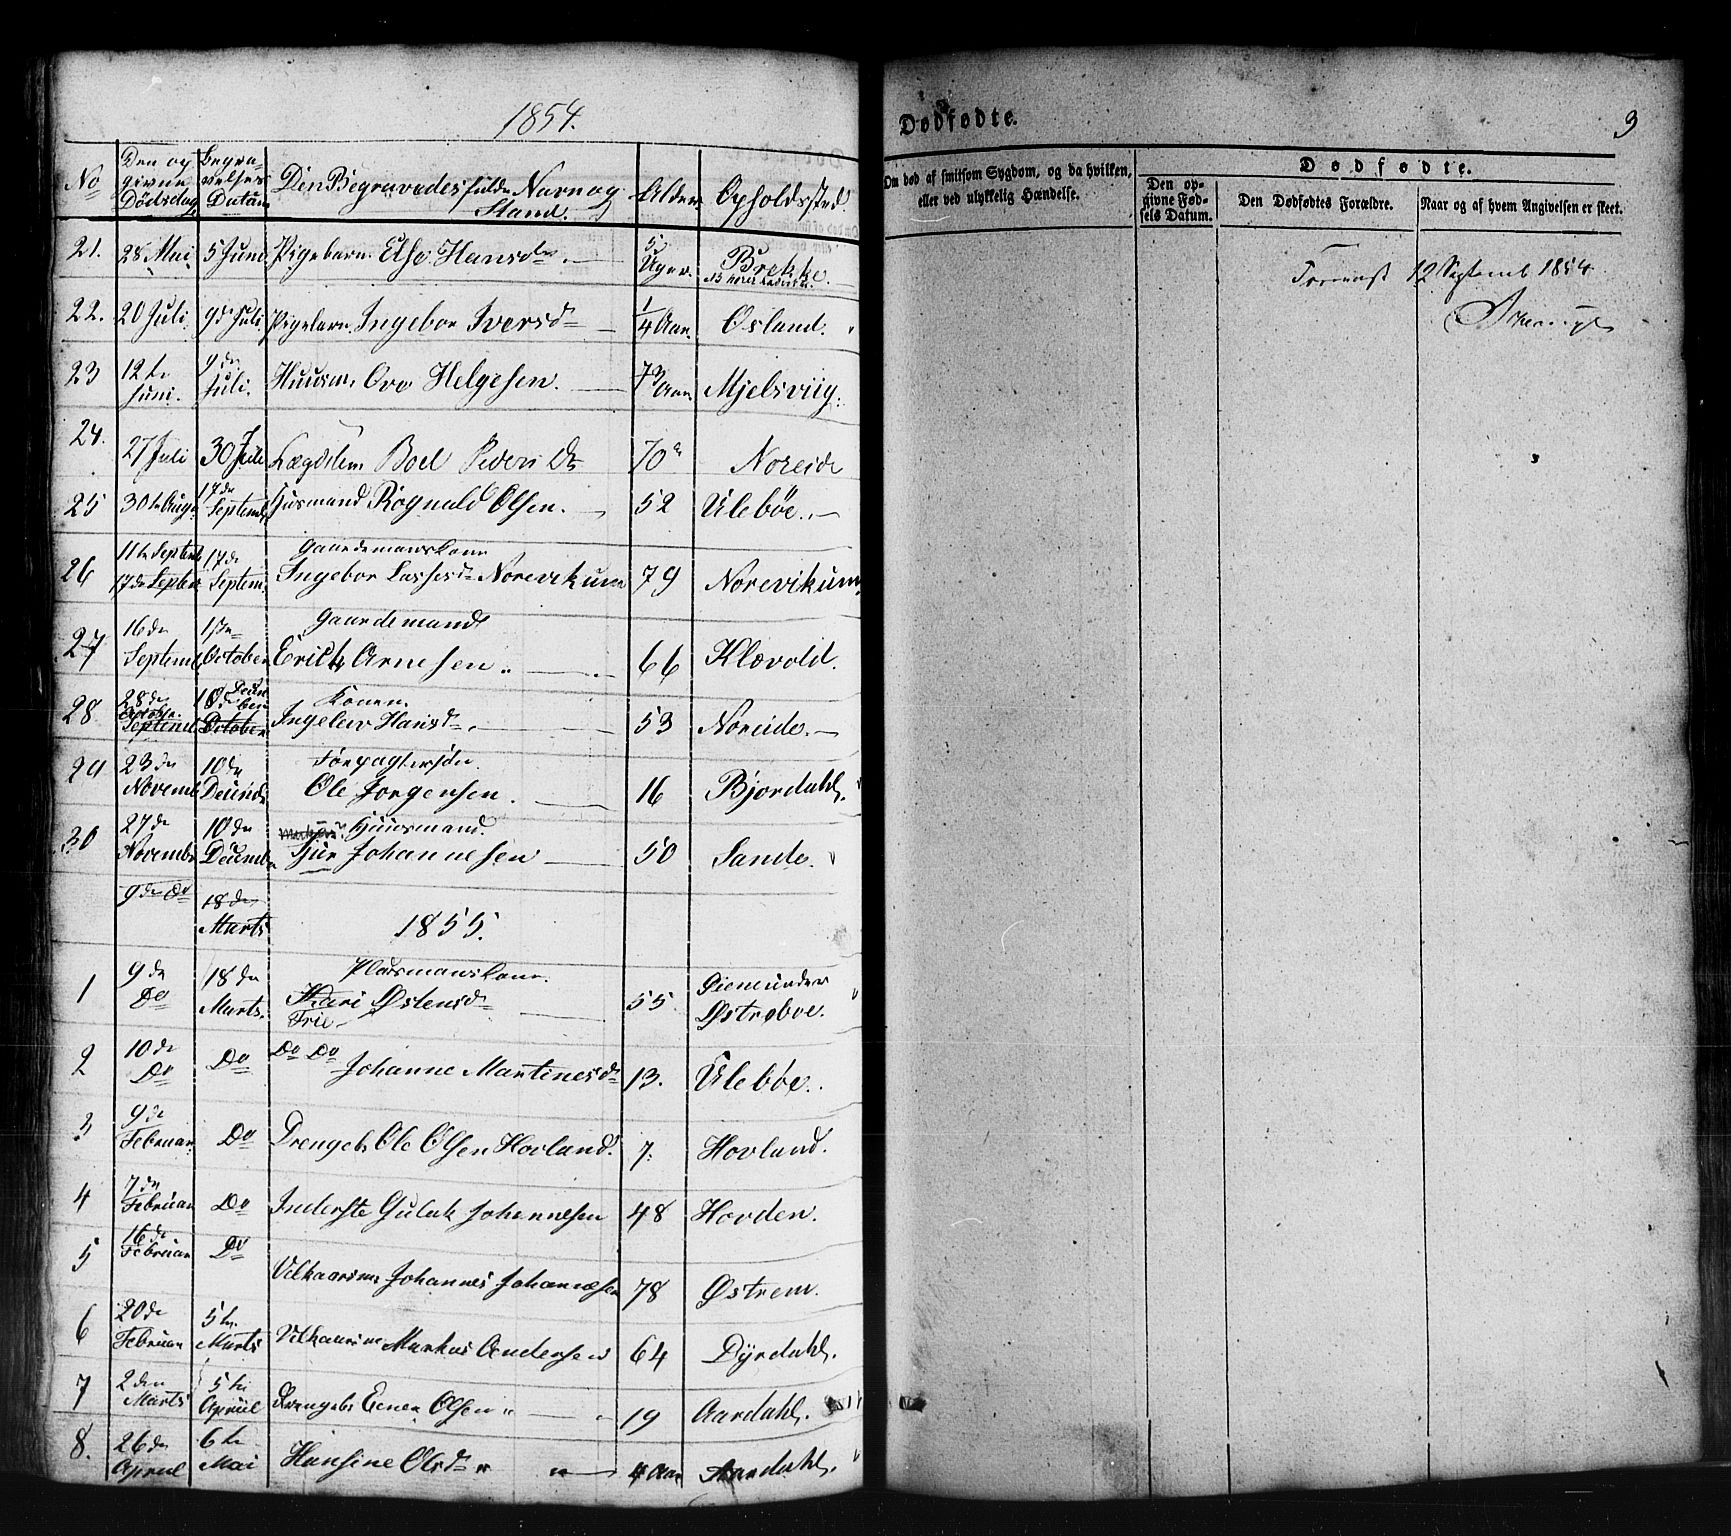 1854.
No Den op givne Dödsdag Begra velses Datum Den Begravedes fulde Navn og Stand. Alder Opholdssted.
21. 28 Mai 5 Juni Pigebarn Else Hansdr 5 Uger. Brekke
22. 20 Juli 9de Juli Pigebarn Ingebor Iversdr 1/4 Aar. Osland.
23 12te Juni. 9de Juli. Huusm. Ove Helgesen. 73 Aar Mjelsviig.
24. 27 Juli 30 Juli Lægdslem Boel Peders Dr 70 Noreide
25 30te Aug 17de Septemb Husmand Rognald Olsen. 52 Ulebøe.
26 11te Septemb 17de Septem. Gaardemanskone
17de Septem Ingebor Lassesdr Norevikum 79 Norevikum
27 16de Septemb 1ste October Gaardemand
Erich Arnesen 66 Klævold.
28 28de October Septemb 10de Decem ber October Konen
Ingelev Hansdr 53 Noreide.
29 23de Novemb 10de Decemb Forpagtersøn
Ole Jorgensen. 16 Bjordahl.
30 27de Novemb 10de Decemb Huusmand.
Sjur Johannesen 50 Sande.
9de Do 18de Marts
1855.
1 9de Do 18de Marts. Pladsmanskone
Kari Østensdr 55 Øiemunder Østrøboe.
Trie
2 10de Do Do Do Do Johanne Martinesdr 13. Ulebøe.
3 9de Februar Do Drengeb. Ole Olsen Hovland. 7. Hovland.
4 7de Februar Do Inderste Gulak Johannesen 48 Hovden.
5 16de Februar Do Vilkaarsm. Johannes Johannesen 78 Østrem.
6 20de Februar 5te Marts Vilkaarsm. Markus Andersen 64 Dyrdahl.
7 2den Marts 5te April Drengeb. Ener Olsen 19 Aardahl.
8. 26de April 6te Mai Hansine Olsdr 4 Aar Aardahl.
Dödfödte. 3
Om död af smitsom Sygdom, og da hvilken, eller ved ulykkelig Hændelse.
Dödfödte.
Den op-givne Föd-sels Datum.
Den Dödfödtes Forældre.
Naar og af hvem Angivelsen er skeet.
12 Septemb 1854